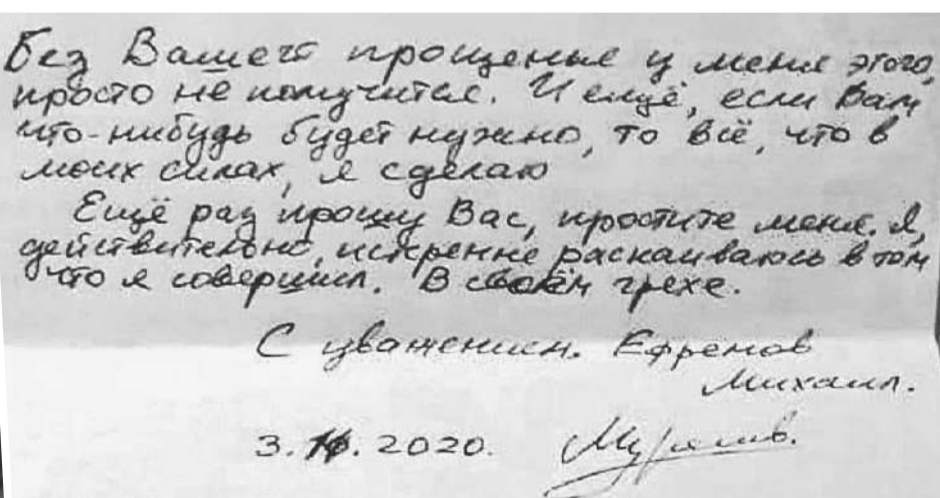 Без Вашего прощенья у меня этого,
просто не получится. И ещё, если Вам
что-нибудь будет нужно, то всё, что в
моих силах, я сделаю
Ещё раз прошу Вас, простите меня. Я,
действительно, искренне раскаиваюсь в том
что я совершил. В своём грехе.
С уважением. Ефремов
Михаил.
3. .2020.